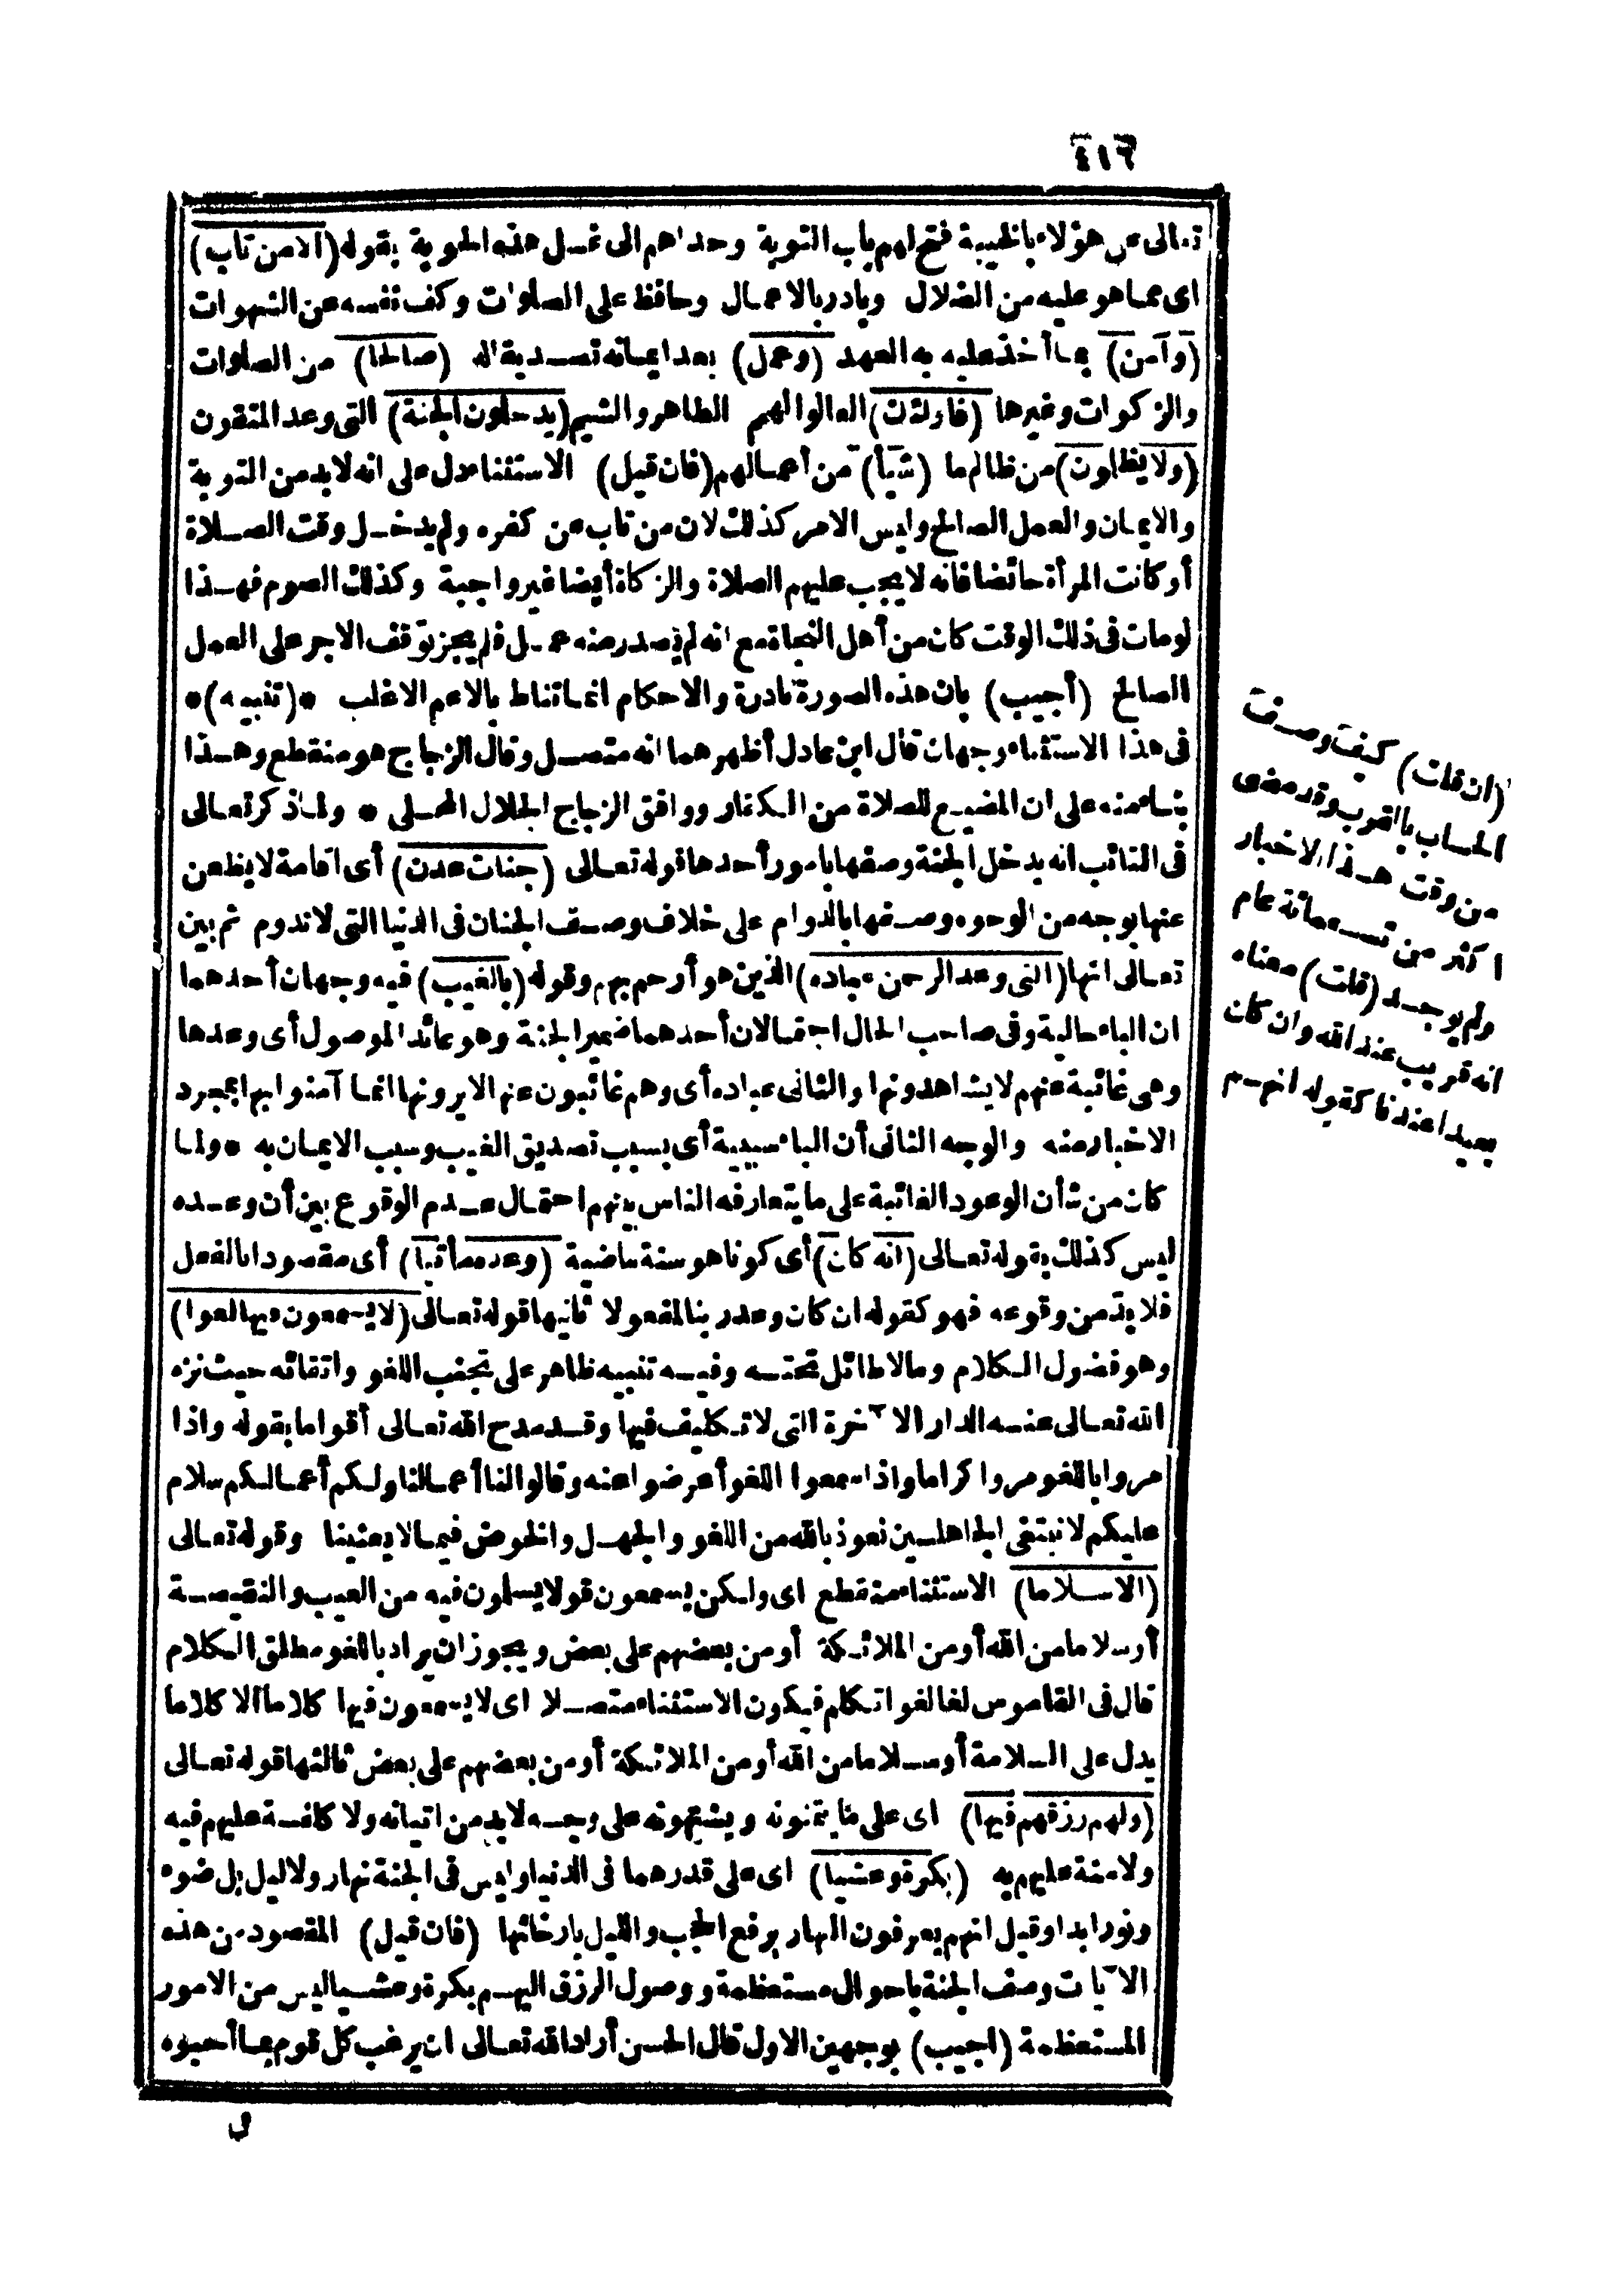 ٤١٦
تعالى عن هؤلاء بالخيبة فتح لهم باب التوبة وحداهم الى غسل هذه الحوبة بقوله (الا من تاب)
اى عما هو عليه من الضلال وبادر بالاعمال وحافظ على الصلوات وكف نفسه عن الشهوات
(وآمن) بما أخذ عليه به العهد (وعمل) بعد ايمانه تصديقا له (صالحا) من الصلوات
والزكوات وغيرها (فاولئك) العالو الهمم الطاهرو الشيم (يدخلون الجنة) التى وعد المتقون
(ولا يظلمون) من ظالم ما (شيأ) من أعمالهم (فان قيل) الاستثناء دل على انه لا بد من التوبة
والايمان والعمل الصالح وليس الامر كذلك لان من تاب عن كفره ولم يدخل وقت الصلاة
أو كانت المرأة حائضا فانه لا يجب عليهم الصلاة والزكاة أيضا غير واجبة وكذلك الصوم فهذا
لو مات فى ذلك الوقت كان من أهل النجاة مع انه لم يصدر منه عمل فلم يجز توقف الاجر على العمل
الصالح (أجيب) بان هذه الصورة نادرة والاحكام انما تناط بالاعم الاغلب * (تنبيه) *
فى هذا الاستثناء وجهان قال ابن عادل أظهرهما انه متصل وقال الزجاج هو منقطع وهذا
بناء منه على ان المضيع للصلاة من الكفار ووافق الزجاج الجلال المحلى * ولما ذكر تعالى
فى التائب انه يدخل الجنة وصفها بامور أحدها قوله تعالى (جنات عدن) أى اقامة لا يظعن
عنها بوجه من الوجوه وصفها بالدوام على خلاف وصف الجنان فى الدنيا التى لا تدوم ثم بين
تعالى انها (التى وعد الرحمن عباده) الذين هو أرحم بهم وقوله (بالغيب) فيه وجهان أحدهما
ان الباء حالية وفى صاحب الحال احتمالان أحدهما ضمير الجنة وهو عائد الموصول أى وعدها
وهى غائبة عنهم لا يشاهدونها والثانى عباده أى وهم غائبون عنها لا يرونها انما آمنوا بها بمجرد
الاخبار منه والوجه الثانى أن الباء سببية أى بسبب تصديق الغيب وسبب الايمان به * ولما
كان من شأن الوعود الغائبة على ما يتعارفه الناس بينهم احتمال عدم الوقوع بين أن وعده
ليس كذلك بقوله تعالى (انه كان) أى كونا هو سنة ماضية (وعده مأتيا) أى مقصودا بالفعل
فلا بد من وقوعه فهو كقوله ان كان وعد ربنا لمفعولا ثانيها قوله تعالى (لا يسمعون فيها لغوا)
وهو فضول الكلام وما لا طائل تحته وفيه تنبيه ظاهر على تجنب اللغو واتقائه حيث نزه
الله تعالى عنه الدار الآخرة التى لا تكليف فيها وقد مدح الله تعالى أقواما بقوله واذا
مروا باللغو مروا كراما واذا سمعوا اللغو أعرضوا عنه وقالوا لنا أعمالنا ولكم أعمالكم سلام
عليكم لا نبتغى الجاهلين نعوذ بالله من اللغو والجهل والخوض فيما لا يعنينا وقوله تعالى
(الا سلاما) الاستثناء منقطع اى ولكن يسمعون قولا يسلمون فيه من العيب والنقيصة
أو سلاما من الله أو من الملائكة أو من بعضهم على بعض ويجوز ان يراد باللغو مطلق الكلام
قال فى القاموس لغا لغوا تكلم فيكون الاستثناء متصلا اى لا يسمعون فيها كلاما الا كلاما
يدل على السلامة أو سلاما من الله أو من الملائكة أو من بعضهم على بعض ثالثها قوله تعالى
(ولهم رزقهم فيها) اى على ما يتمنونه ويشتهونه على وجه لا بد من اتيانه ولا كلفة عليهم فيه
ولا منة عليهم به (بكرة وعشيا) اى على قدرهما فى الدنيا وليس فى الجنة نهار ولا ليل بل ضوء
ونور ابدا وقيل انهم يعرفون النهار برفع الحجب والليل بارخائها (فان قيل) المقصود من هذه
الآيات وصف الجنة باحوال مستعظمة ووصول الرزق اليهم بكرة وعشيا ليس من الامور
المستعظمة (اجيب) بوجهين الاول قال الحسن أراد الله تعالى ان يرغب كل قوم بما أحبوه
(ان قلت) كيف وصف
الحساب بالقرب وقد مضى
من وقت هذا الاخبار
اكثر من تسعمائة عام
ولم يوجد (قلت) معناه
انه قريب عند الله وان كان
بعيدا عندنا كقوله انهم